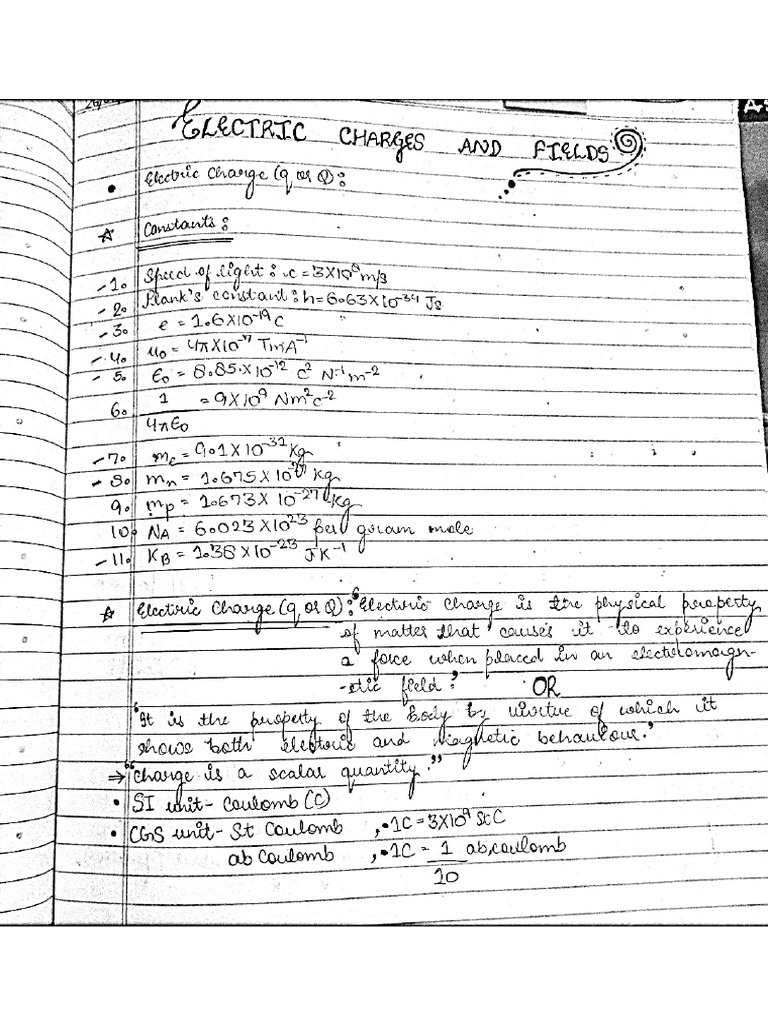 ELECTRIC CHARGES AND FIELDS
• Electric Charge (q or Q):
☆ Constants:
1. Speed of light: c = 3X10⁸ m/s
2. Plank's constant: h = 6.63X10⁻³⁴ Js
3. e = 1.6X10⁻¹⁹ C
4. μ₀ = 4πX10⁻⁷ TmA⁻¹
5. ε₀ = 8.85X10⁻¹² C² N⁻¹m⁻²
6. 1/4πε₀ = 9X10⁹ Nm²c⁻²
7. me = 9.1X10⁻³¹ Kg
8. mn = 1.675X10⁻²⁷ Kg
9. mp = 1.673X 10⁻²⁷ Kg
10. NA = 6.023X10²³ per gram mole
11. KB = 1.38X10⁻²³ JK⁻¹
☆ Electric Charge (q or Q): "Electric charge is the physical property
of matter that causes it to experience
a force when placed in an electromagn-
-etic field." OR
"It is the property of the body by virtue of which it
shows both electric and magnetic behaviour."
→ "charge is a scalar quantity."
• SI unit- Coulomb (C)
• CGS unit- St Coulomb , •1C = 3X10⁹ StC
ab Coulomb , •1C = 1/10 ab,coulomb